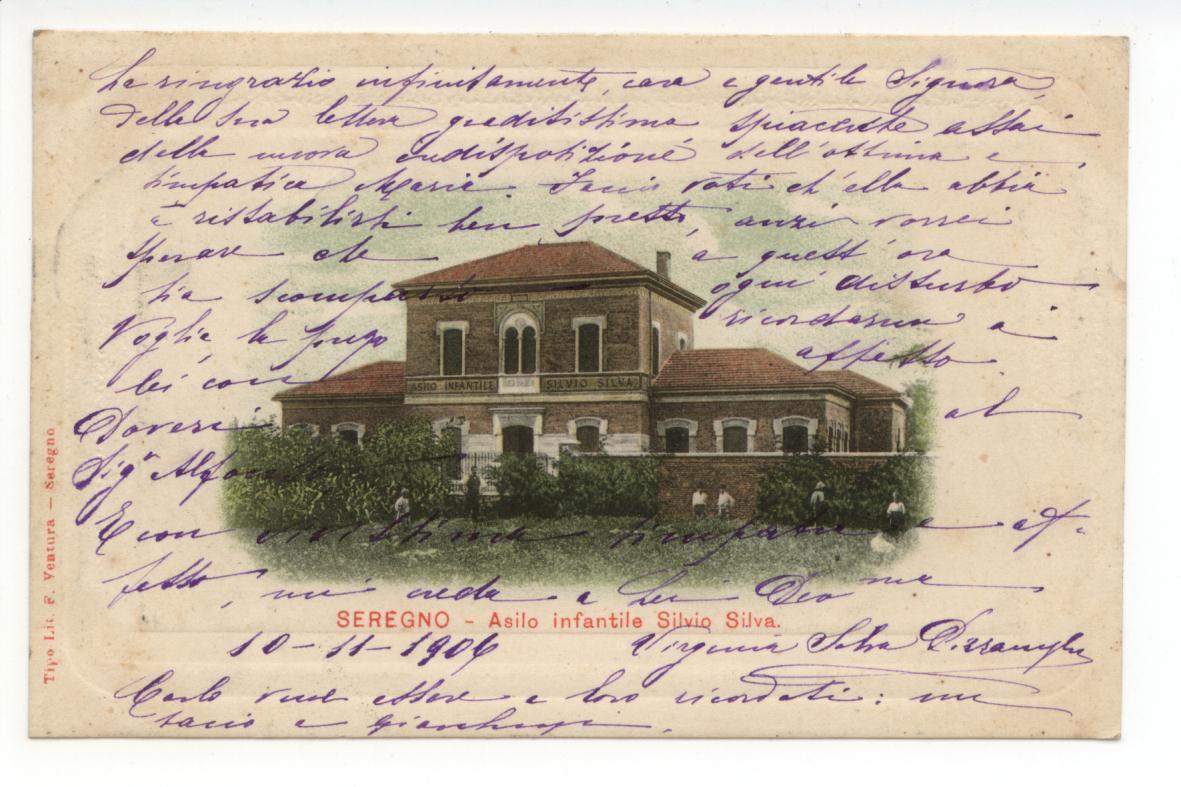 La ringrazio infinitamente, cara e gentile Signora,
della sua lettera graditissima spiacente assai
della nuova indisposizione dell'ottima e
simpatica Maria. Faccio voti ch'ella abbia
a ristabilirsi ben presto, anzi vorrei
sperare che a quest'ora
sia scomparso ogni disturbo
Voglia, la prego ricordarmi a
lei con affetto.
Doveri al
Sigr Alfonso
E con vivissima simpatia e af-
fetto, mi creda a Lei Devma
SEREGNO - Asilo infantile Silvio Silva.
10-11-1906 Virginia Silva
Carlo vuol essere a loro ricordati:
e
ASILO INFANTILE SILVIO SILVA
Tipo Lit. F. Ventura — Seregno